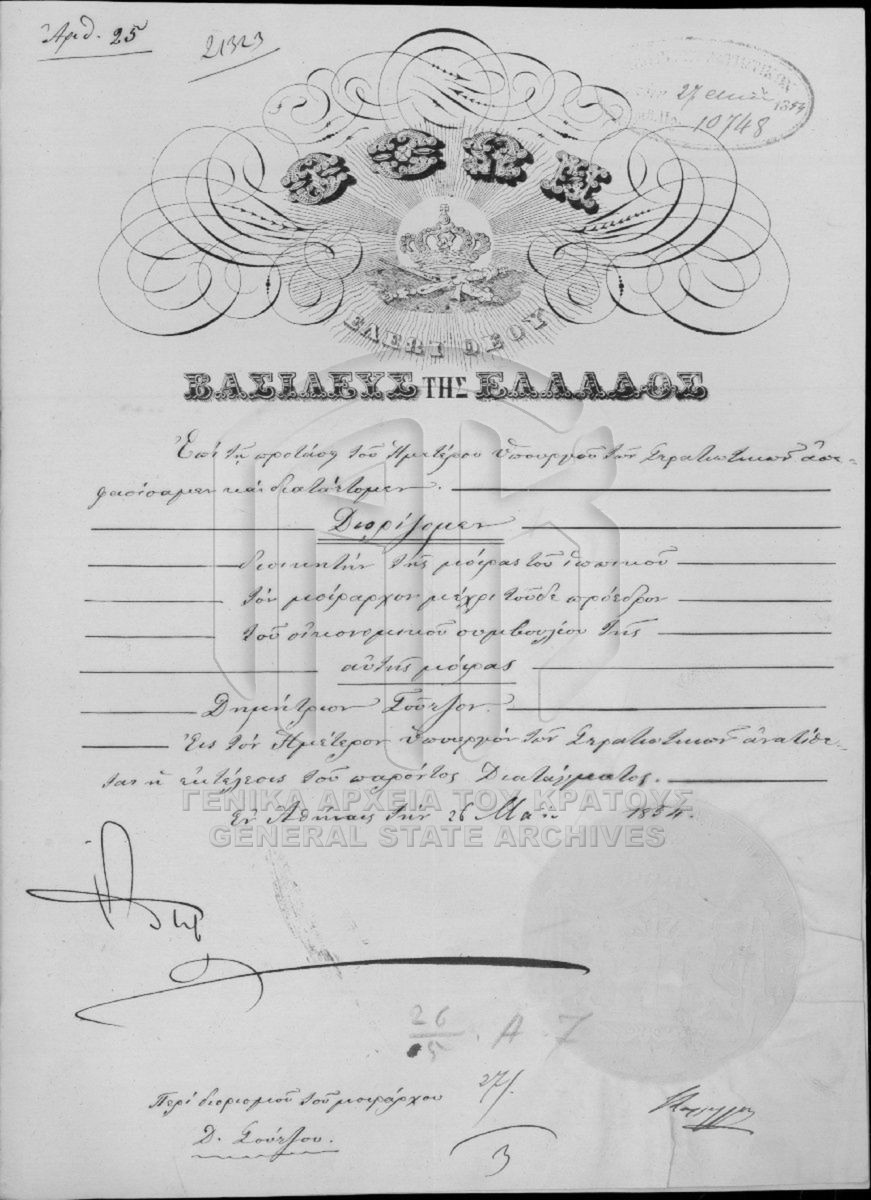 Ἀριθ. 25
21323
27
1854
10748
ΟΘΩΝ
ΕΛΕΩΙ ΘΕΟΥ
ΒΑΣΙΛΕΥΣ ΤΗΣ ΕΛΛΑΔΟΣ
Ἐπὶ τῇ προτάσει τοῦ Ἡμετέρου Ὑπουργοῦ τῶν Στρατιωτικῶν ἀπε-
φασίσαμεν καὶ διατάττομεν.
Διορίζομεν
διοικητὴν τῆς μοίρας τοῦ ἱππικοῦ
τὸν μοίραρχον μέχρι τοῦδε πρόεδρον
τοῦ οἰκονομικοῦ συμβουλίου τῆς
αὐτῆς μοίρας
Δημήτριον Σοῦτσον.
Εἰς τὸν Ἡμέτερον Ὑπουργὸν τῶν Στρατιωτικῶν ἀνατίθε-
ται ἡ ἐκτέλεσις τοῦ παρόντος Διατάγματος.
ΓΕΝΙΚΑ ΑΡΧΕΙΑ ΤΟΥ ΚΡΑΤΟΥΣ
Ἐν Ἀθήναις τὴν 26 Μαΐου 1854.
GENERAL STATE ARCHIVES
26/5 . A. 7
Περὶ διορισμοῦ τοῦ μοιράρχου
27/
Δ. Σούτσου.
3